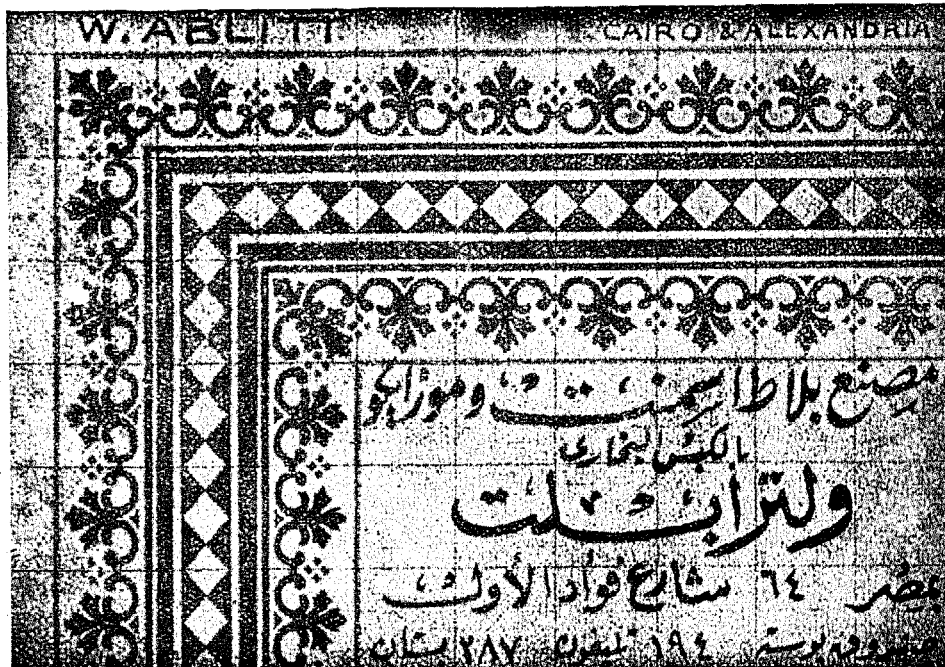 W. ABLITT. CAIRO & ALEXANDRIA
مصنع بلاط اسمنت وموزايكو
بالكبس البخارى
ولتر ابلت
بمصر ٦٤ شارع فؤاد الأول
صندوق بوسته ١٩٤ تليفون ٢٨٧ بستان